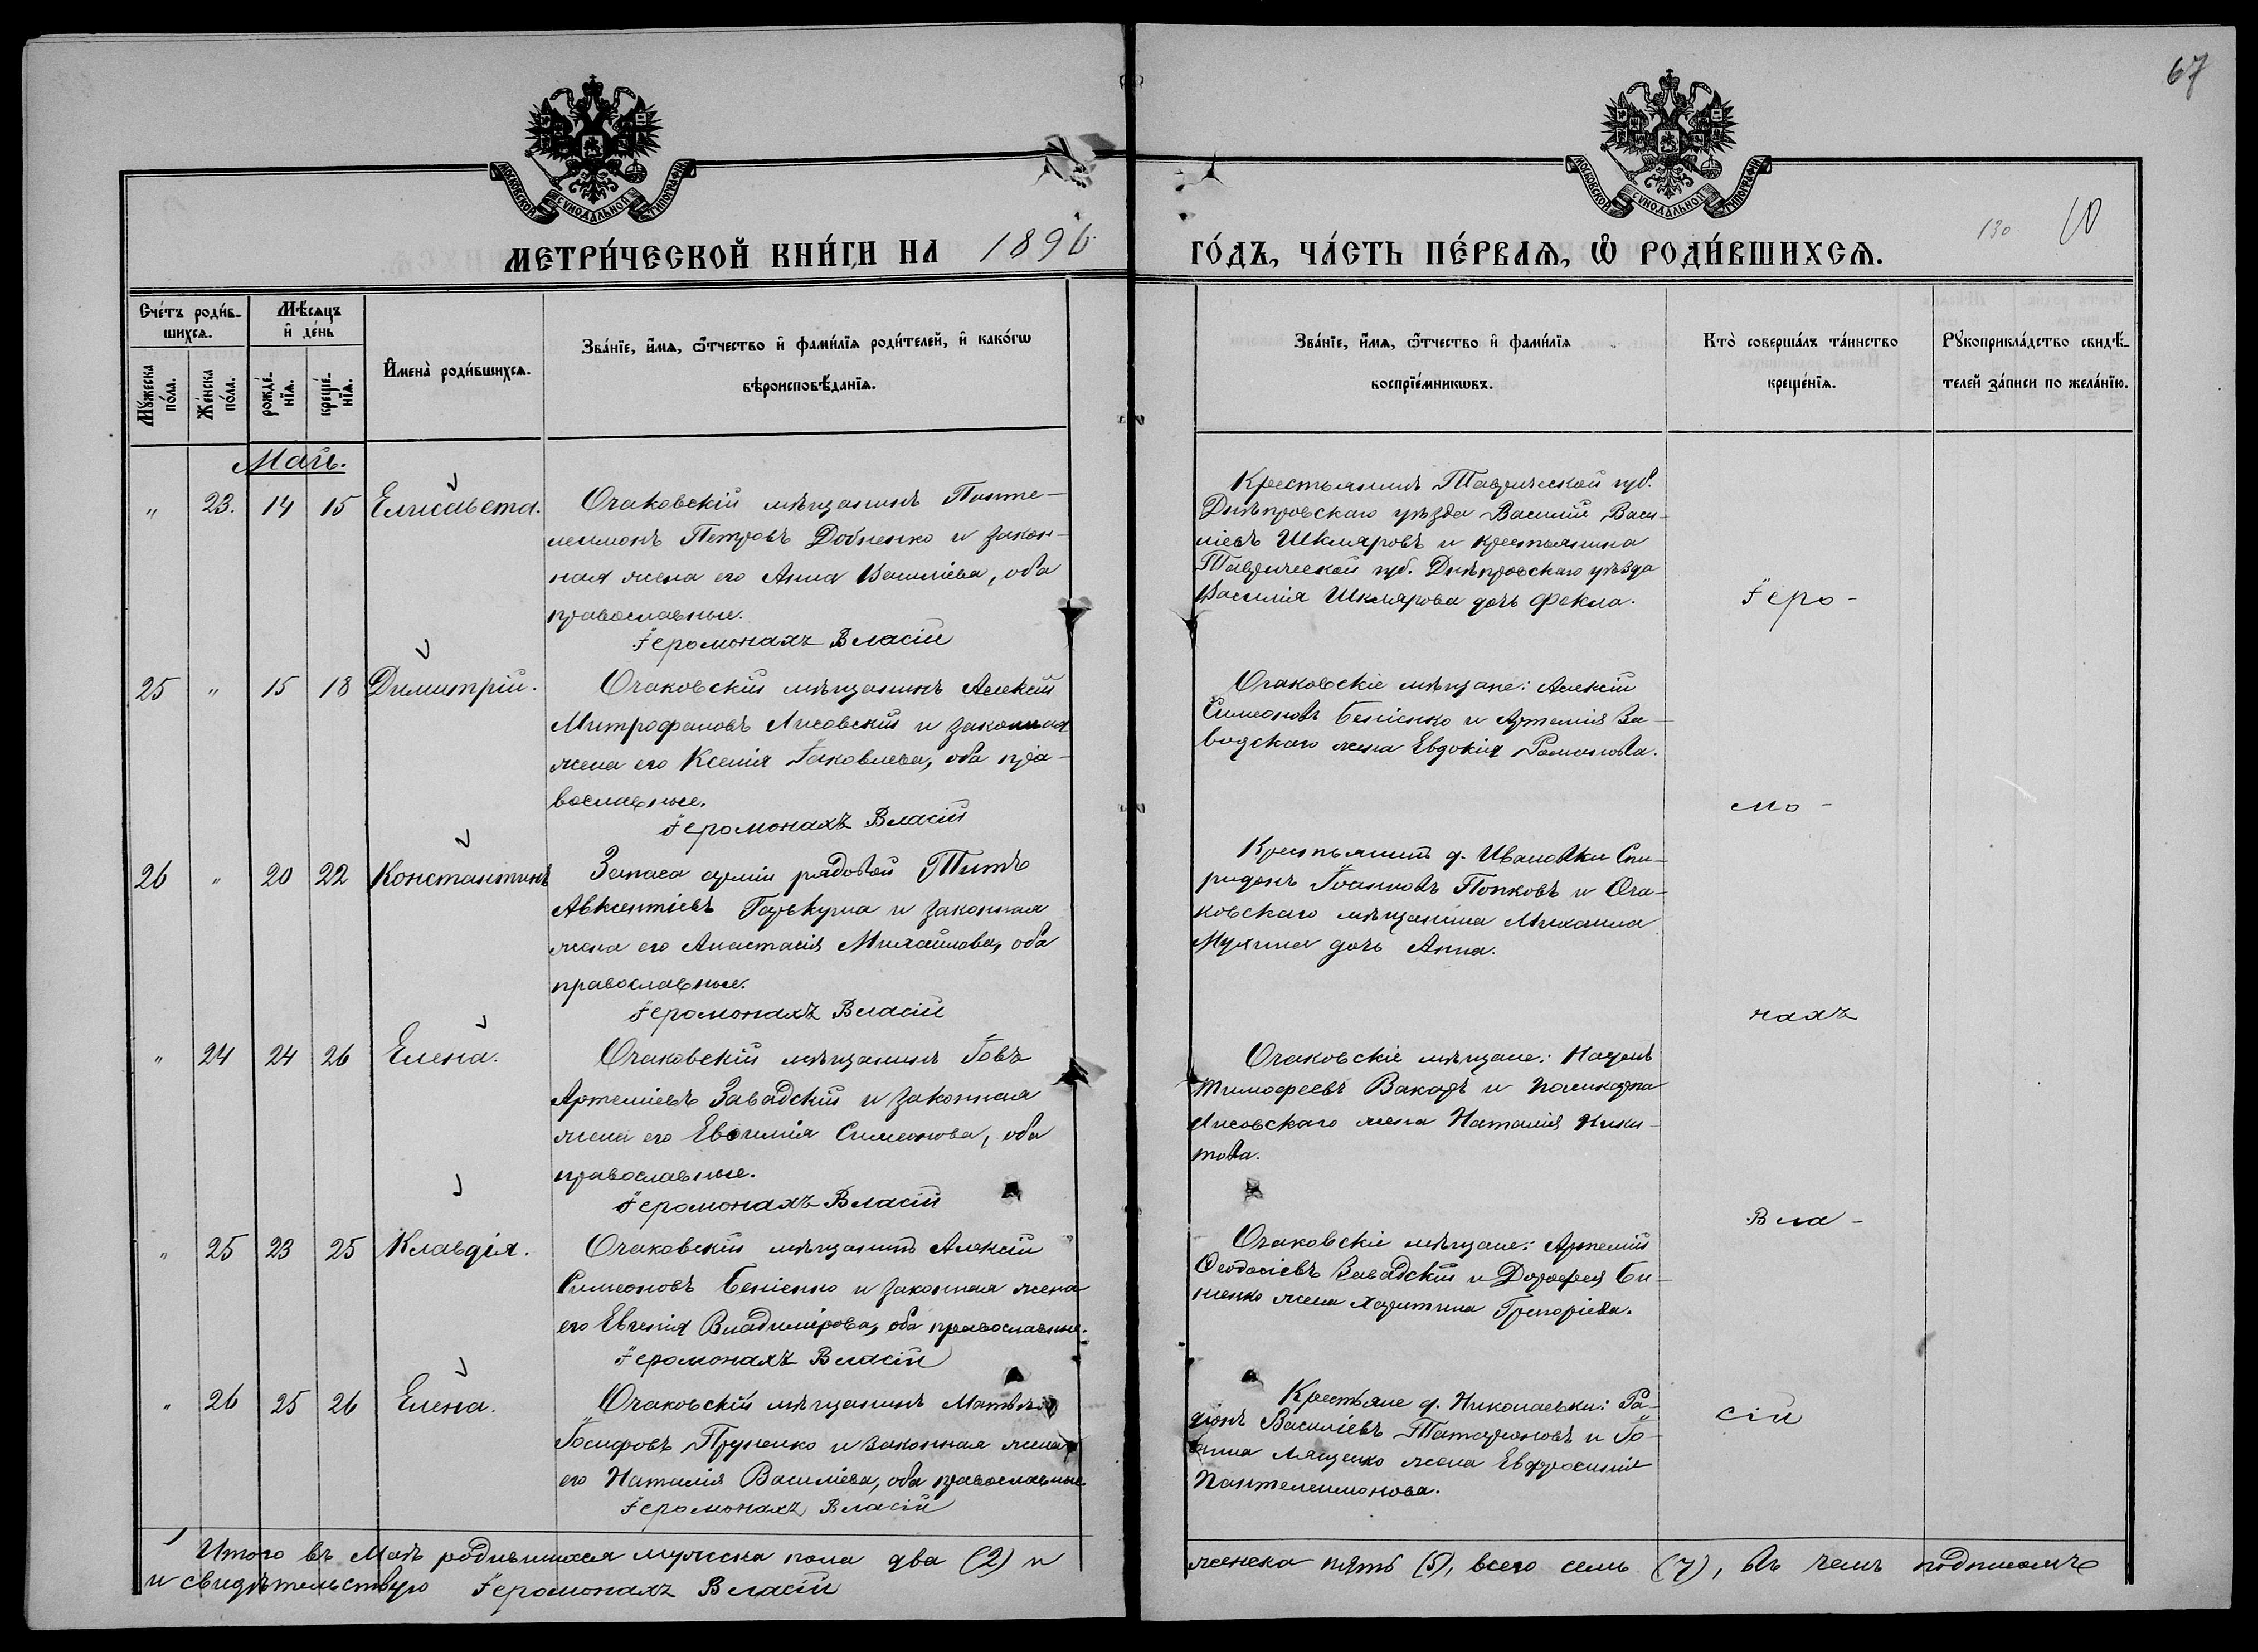 67
МОСКОВСКОЙ СѴНОДАЛЬНОЙ ТИПОГРАФІИ
МОСКОВСКОЙ СѴНОДАЛЬНОЙ ТИПОГРАФІИ
130 10
МЕТРИ́ЧЕСКОЙ КНИ́ГИ НА 1896 ГО́ДЪ, ЧА́СТЬ ПЕ́РВАѦ, Ѡ҆ РОДИ́ВШИХСѦ.
Сче́тъ роди́в-
шихсѧ.
Мꙋ́жеска по́ла.
Же́нска по́ла.
Мѣ́сѧцъ
и҆ де́нь
рожде́-
нїѧ.
креще́-
нїѧ.
И҆мена̀ роди́вшихсѧ.
Зва́нїе, и҆́мѧ, ѻ҆́тчество и҆ фами́лїѧ роди́телей, и҆ како́гѡ
вѣроисповѣ́данїѧ.
Зва́нїе, и҆́мѧ, ѻ҆́тчество и҆ фами́лїѧ
воспрїе́мникѡвъ.
Кто̀ соверша́лъ та́инство
креще́нїѧ.
Рꙋкоприкла́дство свидѣ́-
телей за́писи по жела́нїю.
Май.
" 23. 14 15 Елисавета.
Очаковскій мѣщанинъ Панте-
леимонъ Петровъ Добненко и закон-
ная жена его Анна Василіева, оба
православные.
Іеромонахъ Власій
Крестьянинъ Таврической губ.
Днѣпровскаго уѣзда Василій Васи-
ліевъ Шкляровъ и крестьянина
Таврической губ. Днѣпровскаго уѣзда
Василія Шклярова дочь Фекла.
Іеро-
25 " 15 18 Димитрій.
Очаковскій мѣщанинъ Алексій
Митрофановъ Лисовскій и законная
жена его Ксенія Іаковлева, оба пра-
вославные.
Іеромонахъ Власій
Очаковскіе мѣщане: Алексій
Симеоновъ Беніенко и Артемія За-
вадскаго жена Евдокія Романова.
мо-
26 " 20 22 Константинъ
Запаса арміи рядовой Титъ
Авксентіевъ Гарькуша и законная
жена его Анастасія Михайлова, оба
православные.
Іеромонахъ Власій
Крестьянинъ д. Ивановки Спи-
ридонъ Іоанновъ Попковъ и Оча-
ковскаго мѣщанина Михаила
Мухина дочь Анна.
нахъ
" 24 24 26 Елена.
Очаковскій мѣщанинъ Іовъ
Артеміевъ Завадскій и законная
жена его Евѳимія Симеонова, оба
православные.
Іеромонахъ Власій
Очаковскіе мѣщане: Наумъ
Тимофеевъ Вакаръ и Поликарпа
Лисовскаго жена Наталія Ники-
това.
Вла-
" 25 23 25 Клавдія.
Очаковскій мѣщанинъ Алексій
Симеоновъ Беніенко и законная жена
его Евгенія Владимірова, оба православные.
Іеромонахъ Власій
Очаковскіе мѣщане: Артемій
Ѳеодосіевъ Завадскій и Дорофея Би-
ненко жена Харитина Григоріева.
" 26 25 26 Елена.
Очаковскій мѣщанинъ Матѳей
Іосифовъ Пруненко и законная жена
его Наталія Василіева, оба православные.
Іеромонахъ Власій
Крестьяне д. Николаевки: Ра-
діонъ Василіевъ Татариновъ и Іо-
анна Лященко жена Евфросинія
Пантелеимонова.
сій
Итого въ Маѣ родившихся мужска пола два (2) и женска пять (5), всего семь (7), въ чемъ подписомъ
и свидѣтельствую Іеромонахъ Власій